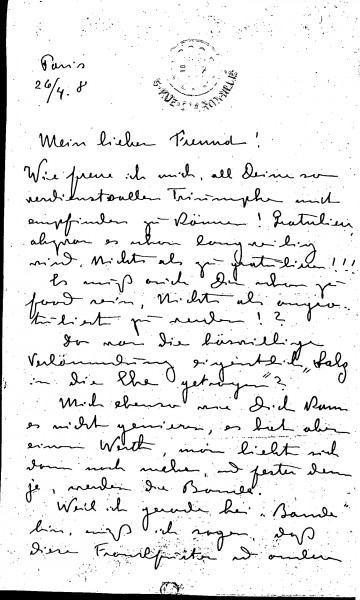 Paris
26/4. 8
Mein lieber Freund!
Wie freue ich mich, all Deine so
verdienstvollen Triumphe mit
empfinden zu können! Gratulieren,
es schon langweilig
wird, Nichts als zu gratulieren!!!
Es muß auch Dir schon zu
fad sein, Nichts als
zu werden!?
Do war die böswillige
Verläumdung eigentlich „Salz
in die Ehe getragen"?
Mich ebenso wie Dich kann
es nicht genieren, es hat aber
einen Werth, man liebt sich
dann noch mehr, und fester denn
je, werden die Bande.
Weil ich gerade bei „Bande"
bin, muß ich sagen, daß
diese Frankfurter und andern